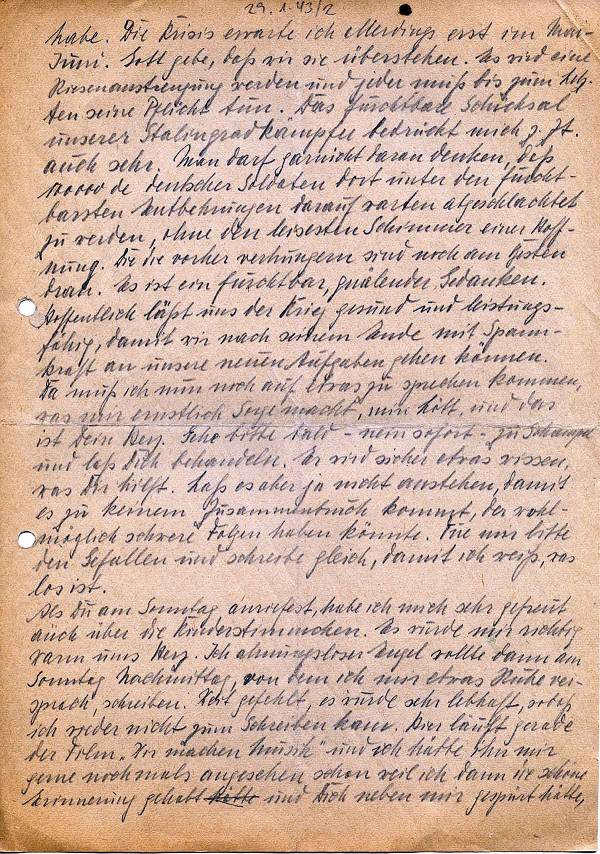 29.1.43/2
habe. Die Krisis erwarte ich allerdings erst im Mai-
Juni. Gott gebe, daß wir sie überstehen. Es wird eine
Riesenanstrengung werden und jeder muß bis zum Letz-
ten seine Pflicht tun. Das furchtbare Schicksal
unserer Stalingradkämpfer bedrückt mich z. Zt.
auch sehr. Man darf garnicht daran denken, daß
de deutscher Soldaten dort unter den furcht-
barsten Entbehrungen darauf warten abgeschlachtet
zu werden, ohne den leisesten Schimmer einer Hoff-
nung. Die die vorher verhungern sind noch am besten
dran. Es ist ein furchtbar, quälender Gedanken.
Hoffentlich läßt uns der Krieg gesund und leistungs-
fähig, damit wir nach seinem Ende mit Spann-
kraft an unsere neuen Aufgaben gehen können.
Da muß ich nun noch auf etwas zu sprechen kommen,
was mir ernstlich Sorge macht, und das
ist Dein Herz. Gehe bitte bald - nein sofort - zu
und laß Dich behandeln. Er wird sicher etwas wissen,
was Dir hilft. Laß es aber ja nicht anstehen, damit
es zu keinem Zusammenbruch kommt, der wohl-
möglich schwere Folgen haben könnte. Tue mir bitte
den Gefallen und schreibe gleich, damit ich weiß, was
los ist.
Als Du am Sonntag anriefst, habe ich mich sehr gefreut
auch über die Kinderstimmchen. Es wurde mir richtig
warm ums Herz. Ich ahnungsloser Engel wollte dann am
Sonntag Nachmittag, von dem ich mir etwas Ruhe ver-
sprach, schreiben. Weit gefehlt, es wurde sehr lebhaft, sodaß
ich wieder nicht zum Schreiben kam. Hier läuft gerade
der Film „Wir machen Musik" und ich hätte ihn mir
gerne nochmals angesehen schon weil ich dann die schöne
Erinnerung gehabt hätte und Dich neben mir gespürt hätte,